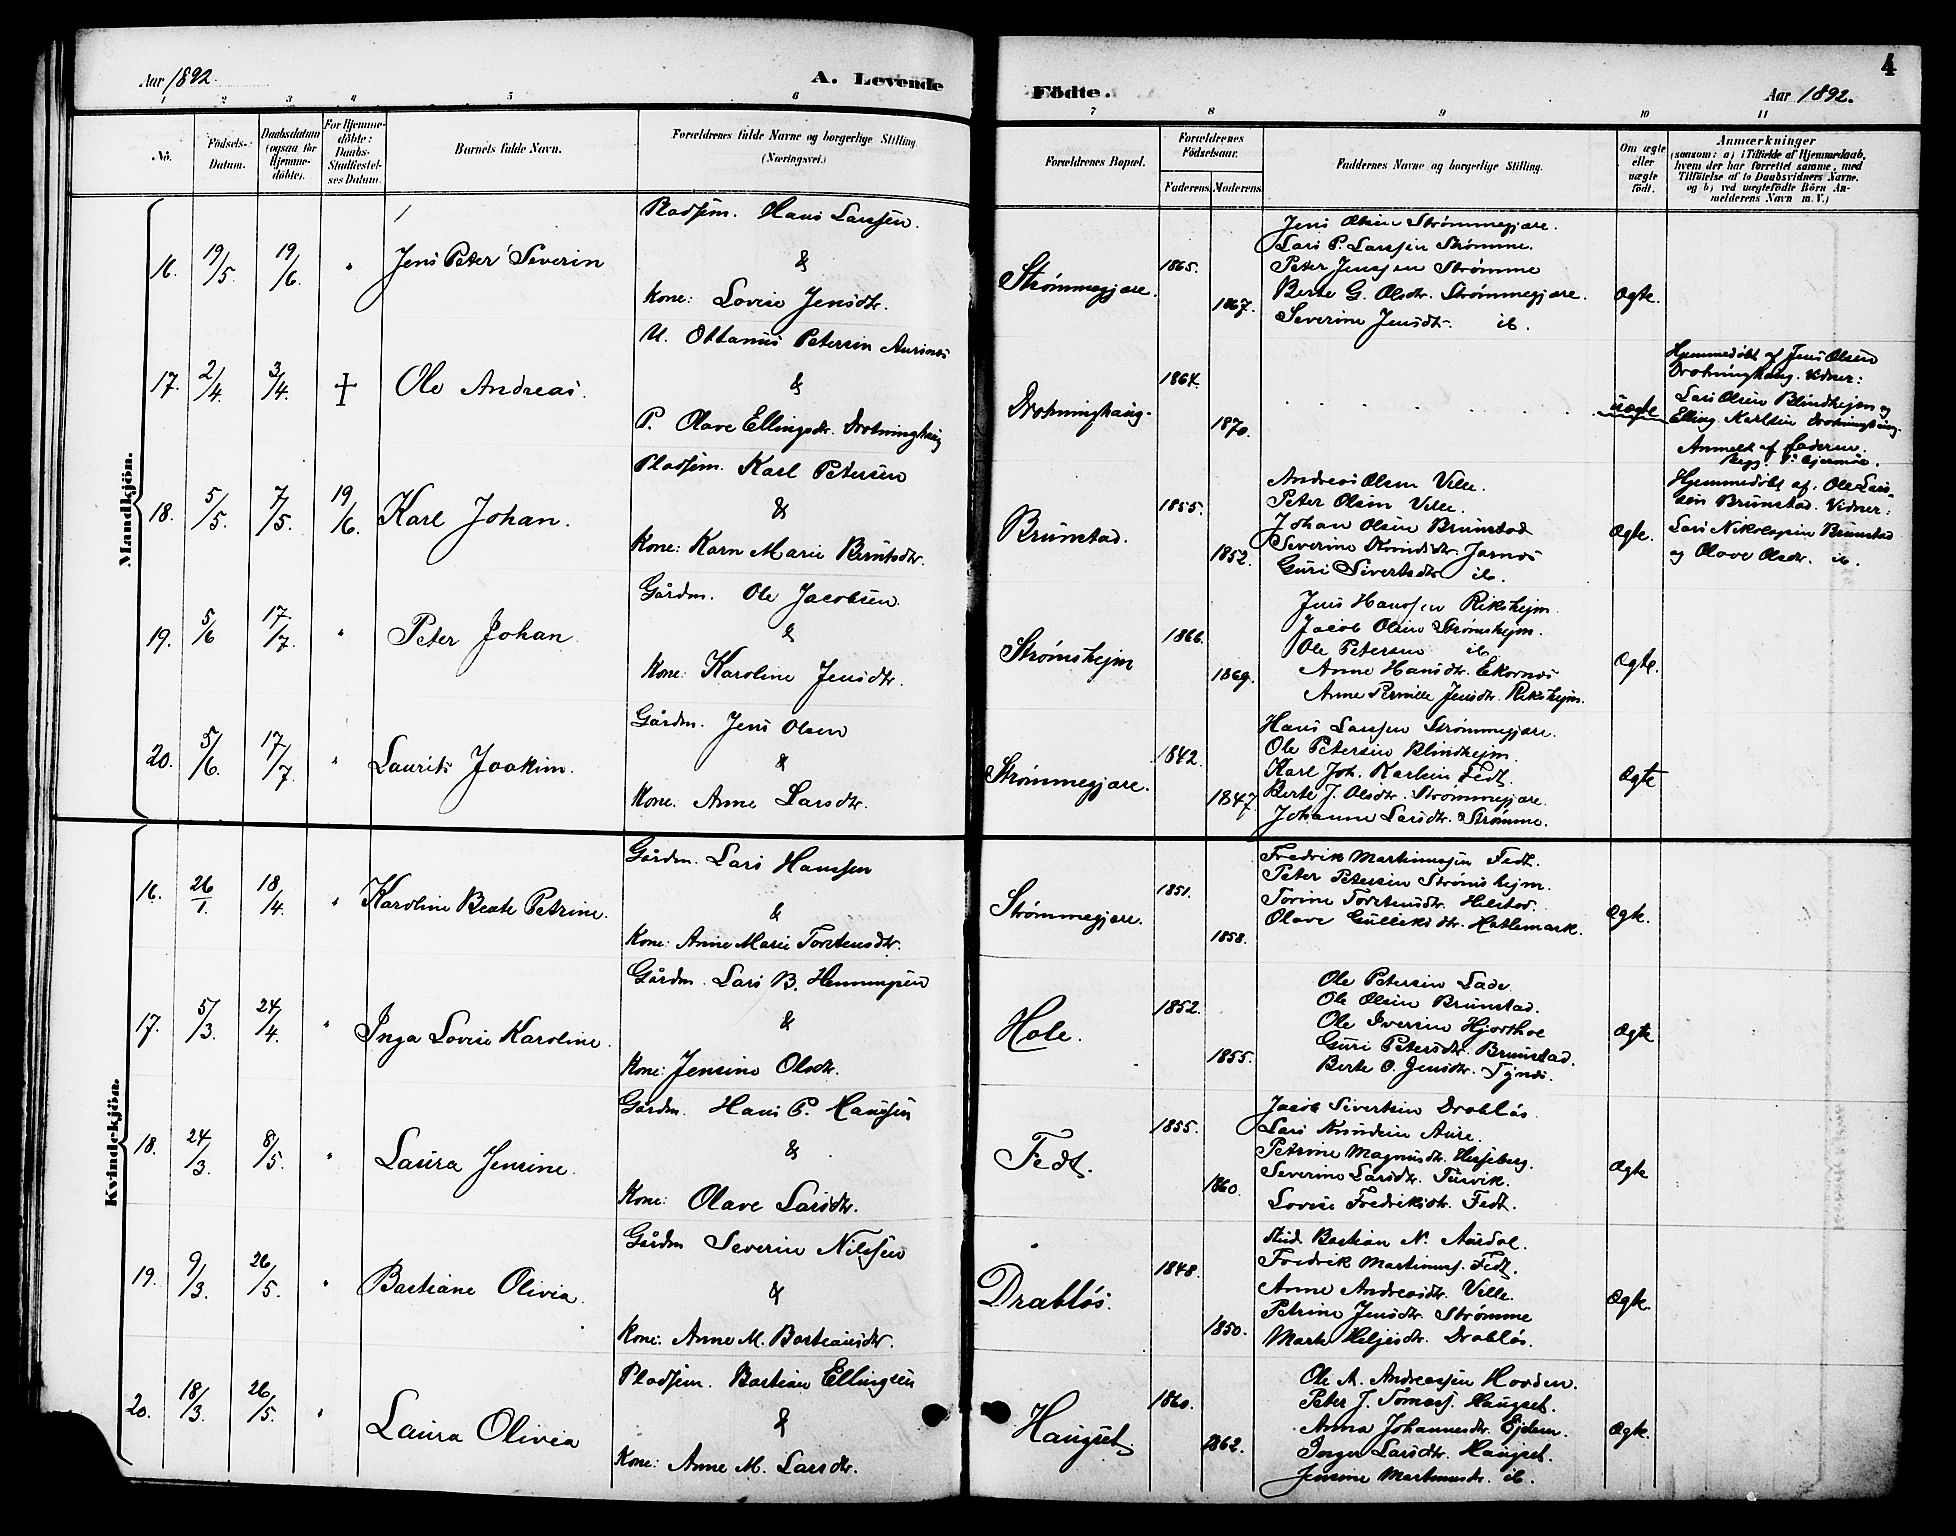 Aar 1892.
A. Levende
Födte.
4
Aar 1892.
1 2 3 4 5 6 7 8 9 10 11
No.
Fødsels-
Datum.
Daabsdatum
(ogsaa for
Hjemme-
døbte).
For Hjemme-
døbte:
Daabs-
Stadfæstel-
ses Datum.
Barnets fulde Navn.
Forældrenes fulde Navne og borgerlige Stilling
(Næringsvei.)
Forældrenes Bopæl.
Forældrenes
Fødselsaar.
Faderens. Moderens.
Faddernes Navne og borgerlige Stilling.
Om ægte
eller
uægte
født.
Anmærkninger
(saasom: a) i Tilfælde af Hjemmedaab,
hvem der har forrettet samme, med
Tilføielse af to Daabsvidners Navne,
og b) ved uægtefødte Børn An-
melderens Navn m. V.)
Mandkjön.
16. 19/5 19/6 " Jens Peter Severin
Pladsm. Hans Larssen.
&
Kone: Lovise Jensdtr.
Strømmegjære.
1865.
1867.
Jens Olsen Strømmegjære.
Lars P. Larssen Strømme.
Peter Jenssen Strømme
Berte G. Olsdtr. Strømmegjære.
Severine Jensdtr. ib.
Ægte.
17. 2/4. 3/4. + Ole Andreas.
U. Ottanius Petersen Aursnes
&
P. Olave Ellingsdr. Drotninghaug
Drotninghaug.
1864.
1870.
uægte
Hjemmedøbt af Jens Olsen
Drotninghaug. Vidner:
Lars Olsen Blindhejm og
Elling Karlsen Drotninghaug.
Anmeldt af Faderen.
18. 5/5. 7/5. 19/6. Karl Johan.
Pladsm. Karl Petersen
&
Kone: Karn Marie Berntsdtr.
Brunstad.
1855.
1852.
Andreas Olsen Velle.
Peter Olsen Velle.
Johan Olsen Brunstad
Severine Knudsdtr. Jarnes
Guri Sivertsdtr ib.
Ægte.
Hjemmedøbt af. Ole Lars-
sen Brunstad. Vidner:
Lars Nikolaysen Brunstad
og Olave Olsdtr. ib.
19. 5/6 17/7. " Peter Johan.
Gårdm. Ole Jacobsen.
&
Kone: Karoline Jensdtr.
Strømshejm
1866.
1869.
Jens Hanssen Rikshejm.
Jacob Olsen Strømshejm.
Ole Petersen ib.
Anne Hansdtr. Ekornæs
Anne Pernille Jensdtr. Rikshejm.
Ægte.
20. 5/6. 17/7 " Laurits Joakim.
Gårdm. Jens Olsen
&
Kone. Anne Larsdtr.
Strømmegjære.
1842.
1847
Hans Larssen Strømmegjære.
Ole Petersen Blindhejm.
Karl Joh. Karlsen Fedt.
Berte J. Olsdtr. Strømmegjære.
Johanne Larsdtr. Strømme.
Ægte
Kvindekjön.
16. 26/1. 18/4. " Karoline Beate Petrine.
Gårdm. Lars Hanssen
&
Kone: Anne Marie Torstensdtr.
Strømmegjære.
1851.
1858.
Fredrik Martinussen Fedt.
Peter Petersen Strømshejm.
Torine Torstensdtr. Helstad.
Olave Gulleksdtr. Hatlemark.
Ægte.
17. 5/3. 24/4. " Inga Lovise Karoline.
Gårdm. Lars B. Hemmingsen
&
Kone: Jensine Olsdtr.
Hole.
1852.
1855.
Ole Petersen Lade.
Ole Olsen Brunstad.
Ole Iversen Hjorthol
Guri Petersdtr. Brunstad.
Berte O. Jensdtr. Tynes.
Ægte
18. 24/3. 8/5. " Laura Jensine.
Gårdm. Hans P. Haugsen
&
Kone: Olave Larsdtr.
Fedt.
1855.
1860.
Jacob Sivertsen Drabløs
Lars Knudsen Aure.
Petrine Magnusdtr. Hesseberg.
Severine Larsdtr. Tusvik.
Lovise Fredriksdtr. Fedt.
Ægte
19. 9/3. 26/5. " Bastiane Olivia.
Gårdm Severin Nilssen
&
Kone: Anne M. Bastiansdtr.
Drabløs.
1848.
1850.
Stud. Bastian N. Aurdal.
Fredrik Martinuss. Fedt.
Anne Andreasdtr. Velle.
Petrine Jensdtr. Strømme
Marte Heljesdtr. Drabløs.
Ægte.
20. 18/3. 26/5. " Laura Olivia
Pladsm. Bastian Ellingsen
&
Kone: Anne M. Larsdtr.
Haugset
1860.
1862.
Ole A. Andreassen Hovden.
Peter J. Tomass. Haugset.
Anna Johannesdtr. Ejdem.
Inger Larsdtr. Haugset.
Jensine Martinusdtr. ib.
Ægte.